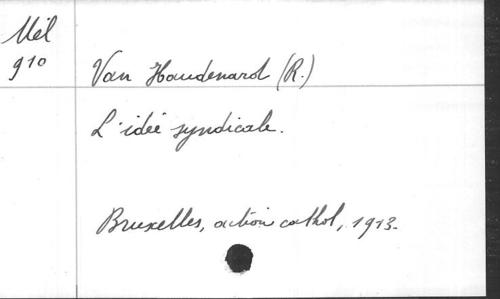 Mél
910
Van Haudenard (R.)
L'idée syndicale.
Bruxelles, action cathol, 1913.